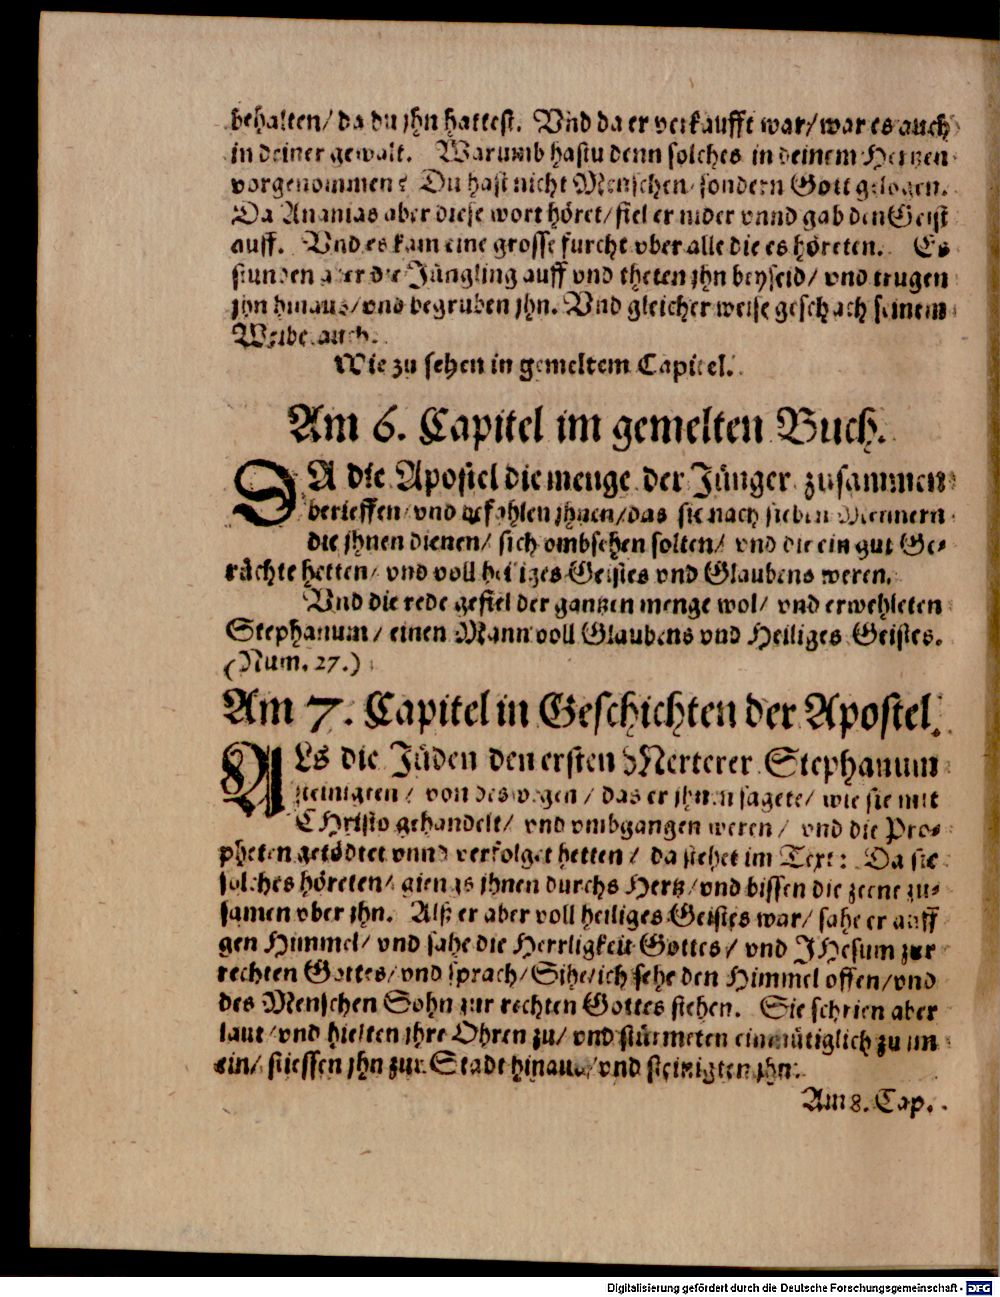 behalten/ da du jhn hattest. Vnd da er verkaufft war/ war es auch
in deiner gewalt. Warumb hastu denn solches in deinem Hertzen
vorgenommen? Du hast nicht Menschen/ sondern Gott gelogen.
Da Ananias aber diese wort höret/ fiel er nider vnnd gab den Geist
auff. Vnd es kam eine grosse furcht vber alle die es höreten. Es
stunden aber die Jüngling auff vnd theten jhn beyseid/ vnd trugen
jhn hinaus/ vnd begruben jhn. Vnd gleicher weise geschach seinem
Weibe auch.
Wie zu sehen in gemeltem Capitel.
Am 6. Capitel im gemelten Buch.
DA die Apostel die menge der Jünger zusammen
berieffen/ vnd befohlen jhnen/ das sie nach sieben Mennern
die jhnen dienen/ sich ombsehen solten/ vnd die ein gut Ge-
rüchte hetten/ vnd voll heiliges Geistes vnd Glaubens weren.
Vnd die rede gefiel der gantzen menge wol/ vnd erwehleten
Stephanum/ einen Mann voll Glaubens vnd Heiliges Geistes.
(Num. 27.)
Am 7. Capitel in Geschichten der Apostel.
ALs die Jüden den ersten Merterer Stephanum
steinigten/ von deswegen/ das er jhnen sagete/ wie sie mit
CHristo gehandelt/ vnd vmbgangen weren/ vnd die Pro-
pheten getödtet vnnd verfolget hetten/ da stehet im Text: Da sie
solches höreten/ gieng es jhnen durchs Hertz/ vnd bissen die zeene zu-
samen vber jhn. Alß er aber voll heiliges Geistes war/ sahe er auff
gen Himmel/ vnd sahe die Herrligkeit Gottes/ vnd JHesum zur
rechten Gottes/ vnd sprach/ Sihe/ ich sehe den Himmel offen/ vnd
des Menschen Sohn zur rechten Gottes stehen. Sie schrien aber
laut/ vnd hielten jhre Ohren zu/ vnd stürmeten einmütiglich zu im
ein/ stiessen jhn zur Stadt hinaus/ vnd steinigten jhn.
Am 8. Cap.
Digitalisierung gefördert durch die Deutsche Forschungsgemeinschaft - DFG